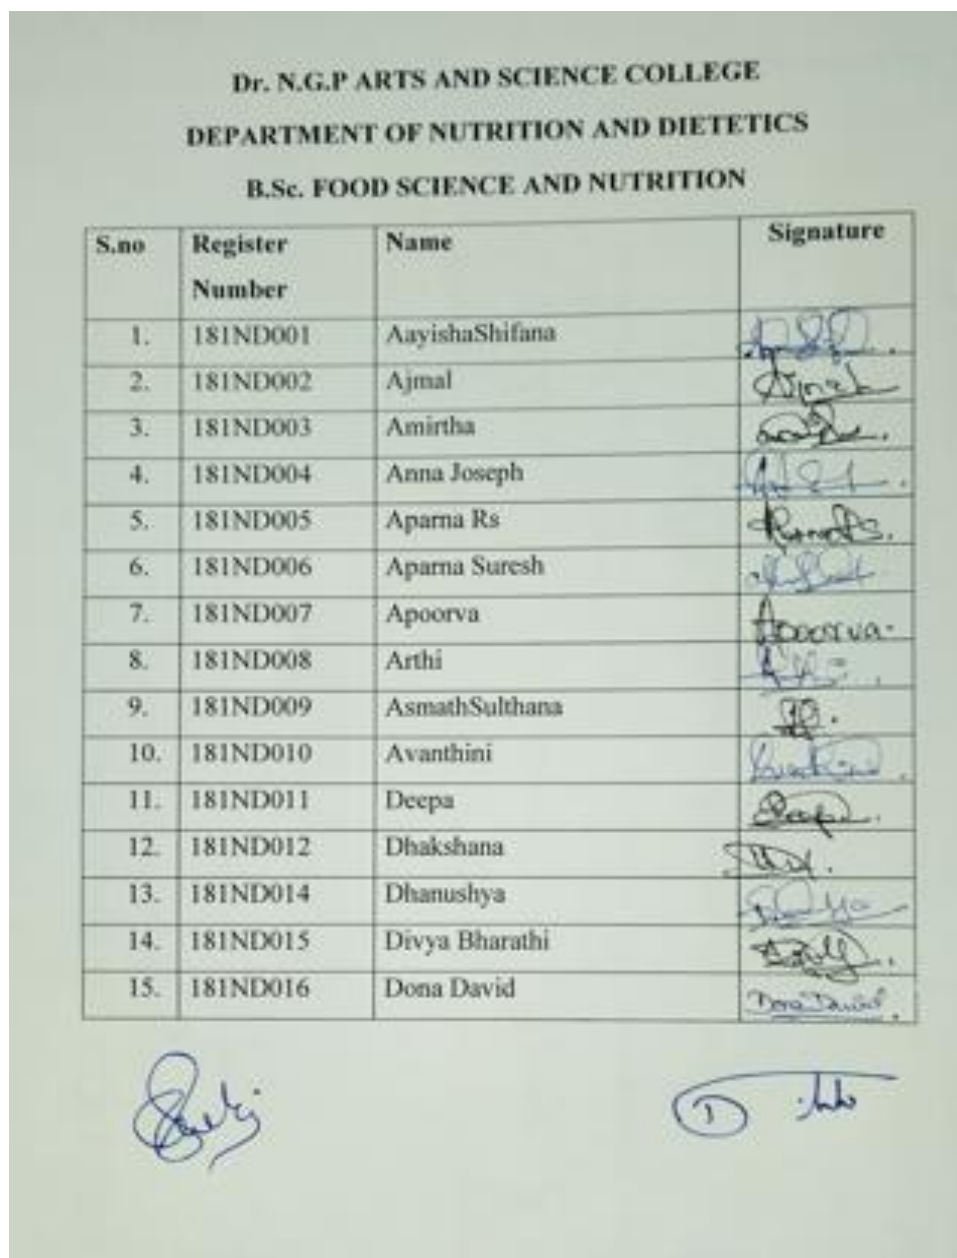 Dr. N.G.P ARTS AND SCIENCE COLLEGE
DEPARTMENT OF NUTRITION AND DIETETICS
B.Sc. FOOD SCIENCE AND NUTRITION
S.no Register Number Name Signature
1. 181ND001 AayishaShifana
2. 181ND002 Ajmal Ajmal
3. 181ND003 Amirtha
4. 181ND004 Anna Joseph
5. 181ND005 Aparna Rs
6. 181ND006 Aparna Suresh
7. 181ND007 Apoorva Apoorva
8. 181ND008 Arthi
9. 181ND009 AsmathSulthana
10. 181ND010 Avanthini
11. 181ND011 Deepa
12. 181ND012 Dhakshana
13. 181ND014 Dhanushya
14. 181ND015 Divya Bharathi
15. 181ND016 Dona David Dona David